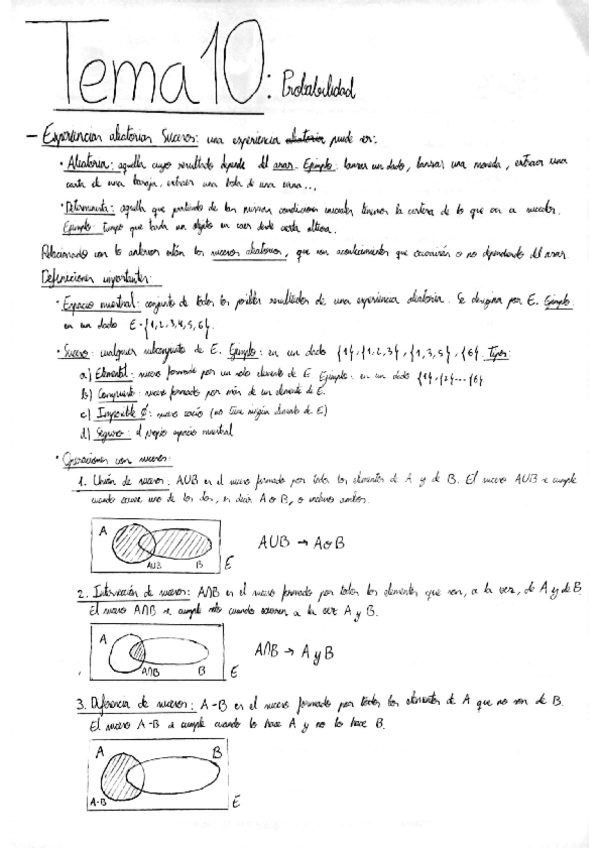 Tema 10: Probabilidad
- Experiencias aleatorias. Sucesos: una experiencia aleatoria puede ser:
· Aleatoria: aquella cuyo resultado depende del azar. Ejemplo: lanzar un dado, lanzar una moneda, extraer una
carta de una baraja, extraer una bola de una urna...
· Determinista: aquella que partiendo de las mismas condiciones iniciales tenemos la certeza de lo que va a suceder.
Ejemplo: tiempo que tarda un objeto en caer desde cierta altura.
Relacionado con lo anterior están los sucesos aleatorios, que son acontecimientos que ocurrirán o no dependiendo del azar.
Definiciones importantes:
· Espacio muestral: conjunto de todos los posibles resultados de una experiencia aleatoria. Se designa por E. Ejemplo:
en un dado E={1,2,3,4,5,6}.
· Suceso: cualquier subconjunto de E. Ejemplo: en un dado {1},{1,2,3},{1,3,5},{6}. Tipos:
a) Elemental: suceso formado por un solo elemento de E. Ejemplo: en un dado {1},{2}...{6}
b) Compuesto: suceso formado por más de un elemento de E.
c) Imposible Ø: suceso vacío (no tiene ningún elemento de E)
d) Seguro: el propio espacio muestral
· Operaciones con sucesos:
1. Unión de sucesos: AUB es el suceso formado por todos los elementos de A y de B. El suceso AUB se cumple
cuando ocurre uno de los dos, es decir, A o B, o incluso ambos.
A
AUB B E
AUB → A o B
2. Intersección de sucesos: A∩B es el suceso formado por todos los elementos que son, a la vez, de A y de B.
El suceso A∩B se cumple sólo cuando ocurren a la vez A y B.
A
A∩B B E
A∩B → A y B
3. Diferencia de sucesos: A-B es el suceso formado por todos los elementos de A que no son de B.
El suceso A-B se cumple cuando lo hace A y no lo hace B.
A B
A-B E